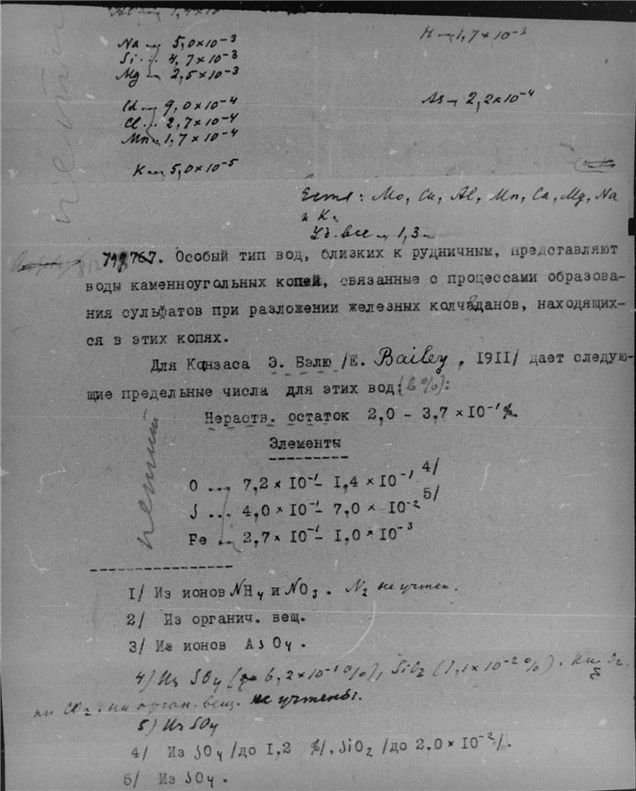 Na — 5,0×10⁻³
H — 1,7×10⁻³
Si ... 4,7×10⁻³
Mg — 2,5×10⁻³
Cd — 9,0×10⁻⁴
As — 2,2×10⁻⁴
Cl ... 2,7×10⁻⁴
Mn — 1,7×10⁻⁴
K — 5,0×10⁻⁵
Есть: Mo, Cu, Al, Mn, Ca, Mg, Na
и K.
Уд. вес — 1,3
767. Особый тип вод, близких к рудничным, представляют
воды каменноугольных копей, связанные с процессами образова-
ния сульфатов при разложении железных колчеданов, находящих-
ся в этих копях.
Для Канзаса Э. Бэлю /E. Bailey, 1911/ дает следую-
щие предельные числа для этих вод (в %):
Нераств. остаток 2,0 - 3,7×10⁻¹%.
Элементы
O ... 7,2×10⁻¹ - 1,4×10⁻¹ 4/
S ... 4,0×10⁻¹ - 7,0×10⁻² 5/
Fe ... 2,7×10⁻¹ - 1,0×10⁻³
петит
петит
1/ Из ионов NH₄ и NO₃. N₂ не учтен.
2/ Из органич. вещ.
3/ Из ионов AsO₄.
4) Из SO₄ (до 6,2×10⁻¹%), SiO₂ (1,1×10⁻²%). Ни O₂,
ни CO₂, ни орган. вещ. не учтены.
5) Из SO₄
4/ Из SO₄ /до 1,2 %/, SiO₂ /до 2,0×10⁻²/.
5/ Из SO₄.